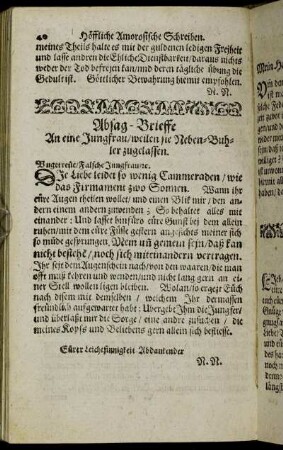 40 Höffliche Amorosische Schreiben.
meines Theils halte es mit der guldenen ledigen Freyheit
und lasse andren die Ehliche Dienstbarkeit / daraus nichts
weder der Tod befreyen kan / und deren tägliche übung die
Gedult ist. Göttlicher Bewahrung hiemit empfohlen.
N. N.
Absag-Brieffe
An eine Jungfrau / weilen sie Neben-Buh-
ler zugelassen.
Falsche Jungfrau etc.
DJe Liebe leidet so wenig Cammeraden / wie
das Firmament zwo Sonnen. Wann ihr
eüre Augen theilen wollet / und einen Blik mir / den an-
dern einem andern zuwenden / So behaltet alles mit
einander: Und lasset hinfüro eüre Gunst bey dem allein
ruhen / mit dem eüre Füsse gestern angesichts meiner sich
so müde gesprungen. Mein uñ gemein seyn / daß kan
nicht bestehe / noch sich mit einandern vertragen.
Ihr seyt dem Augenschein nach / von den waaren / die man
offt muß kehren und wenden / und nicht lang gern an ei-
ner Stell wollen ligen bleiben. Wolan / vergeit Euch
nach disem mit demselben / welchem Ihr dermassen
freündlich auffgewartet habt: Ubergebt Ihm die Jungfer /
und überlaßt mir die Sorge / eine andre zusuchen / die
meines Kopfs und Beliebens gern allein sich befliesse.
Eürer Leichtsinnigkeit Abdankender
N. N.